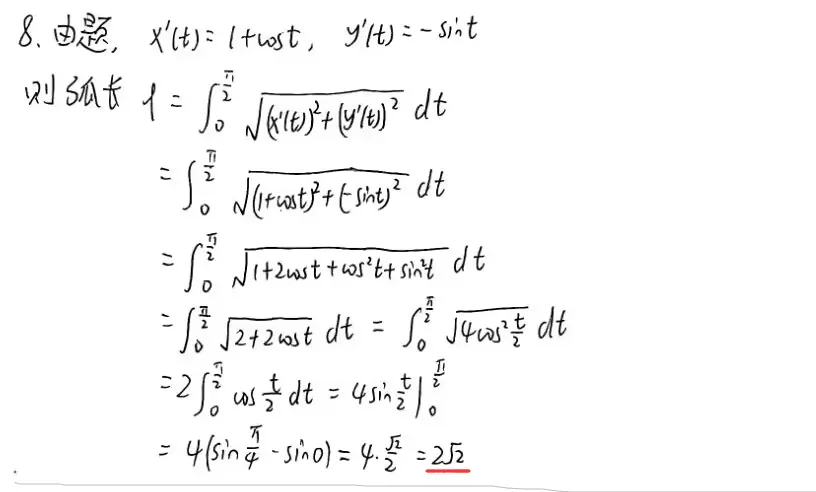 8. 由题, x'(t)=1+cost, y'(t)=-sint
则弧长 l = ∫₀^{π/2} √((x'(t))²+(y'(t))²) dt
= ∫₀^{π/2} √((1+cost)²+(-sint)²) dt
= ∫₀^{π/2} √(1+2cost+cos²t+sin²t) dt
= ∫₀^{π/2} √(2+2cost) dt = ∫₀^{π/2} √(4cos²(t/2)) dt
= 2∫₀^{π/2} cos(t/2) dt = 4sin(t/2)|₀^{π/2}
= 4(sin(π/4) - sin0) = 4·(√2/2) = 2√2